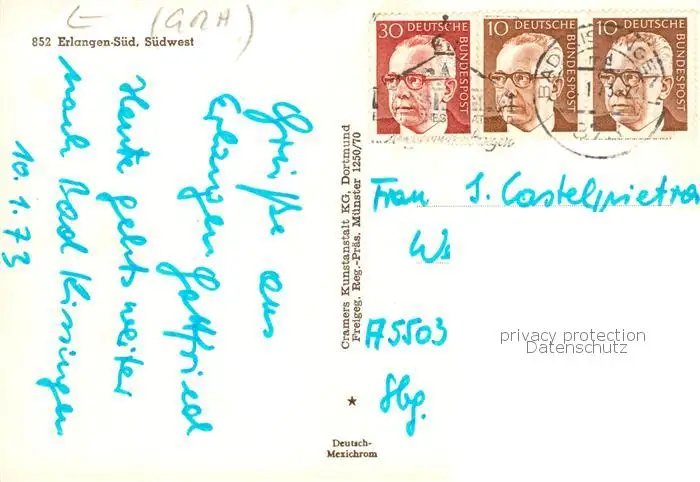 (GRH)
852 Erlangen-Süd, Südwest
Grüße aus
Erlangen Gottfried
Heute gehts weiter
nach Bad Kissingen
10.1.73
Cramers Kunstanstalt KG, Dortmund
Freigeg. Reg.-Präs. Münster 1250/70
★
Deutsch-
Mexichrom
30 DEUTSCHE BUNDESPOST
10 DEUTSCHE BUNDESPOST
10 DEUTSCHE BUNDESPOST
Frau I. Castelpietra
A5503
Hbg.
privacy protection
Datenschutz